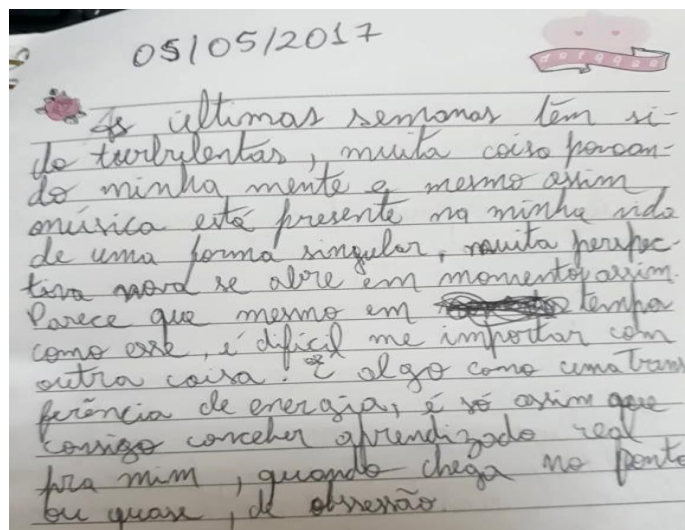 05/05/2017
As últimas semanas têm si-
do turbulentas, muita coisa povoan-
do minha mente e mesmo assim
música está presente na minha vida
de uma forma singular, muita perspec-
tiva nova se abre em momentos assim.
Parece que mesmo em tempo
como esse, é difícil me importar com
outra coisa. É algo como uma trans
ferência de energia, é só assim que
consigo conceber aprendizado real
pra mim, quando chega no ponto
ou quase, de obsessão.